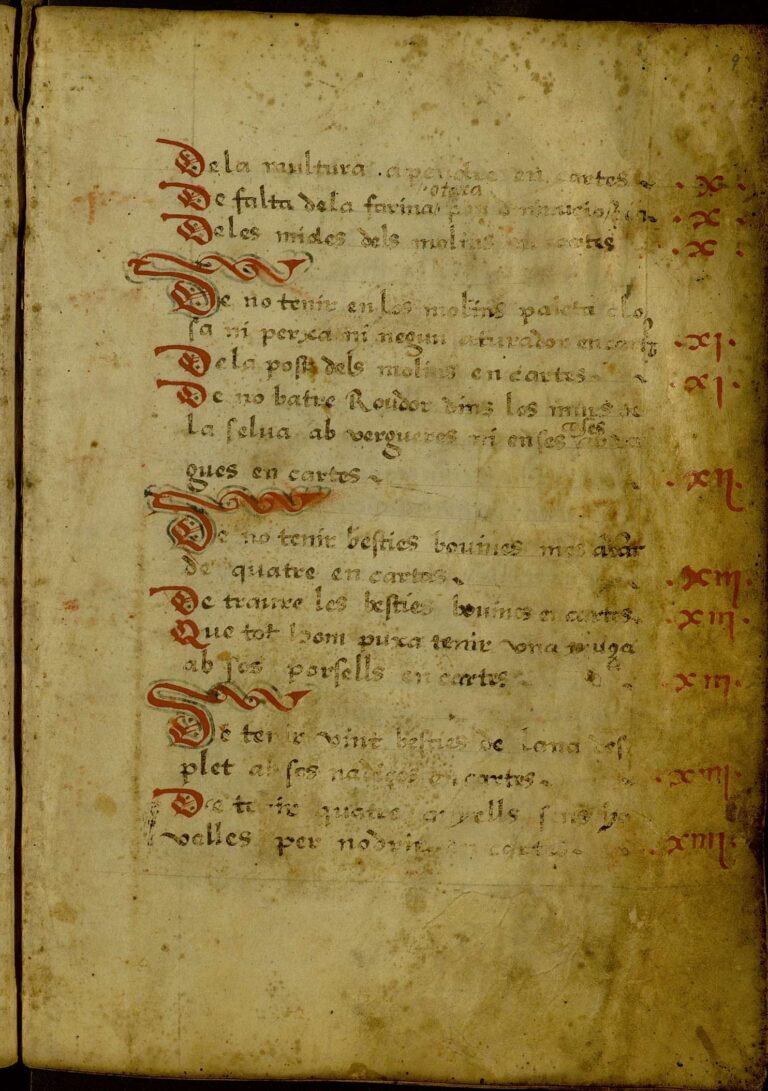 9
De la multura . a pendre en cartes . x .
otera
De falta de la farina . x .
De les mides dels molins en cartes . x .
De no tenir en los molins paleta clo
sa ni perxa ni negun aturador en cart . xi .
De la post dels molins en cartes . xi .
De no batre Roudor dins los murs de
la selva ab vergueres ni en ses
cases
gues en cartes . xii .
De no tenir besties bouines mes auar
de quatre en cartes . xiii .
De traure les besties bouines en cartes . xiii .
Que tot hom puxa tenir vna truga
ab sos porsells en cartes . xiii .
De tenir vint besties de lana des
plet ab sos en cartes . xiiii .
De tenir quatre anyells sens
velles per nodrir en cartes . xiiii .